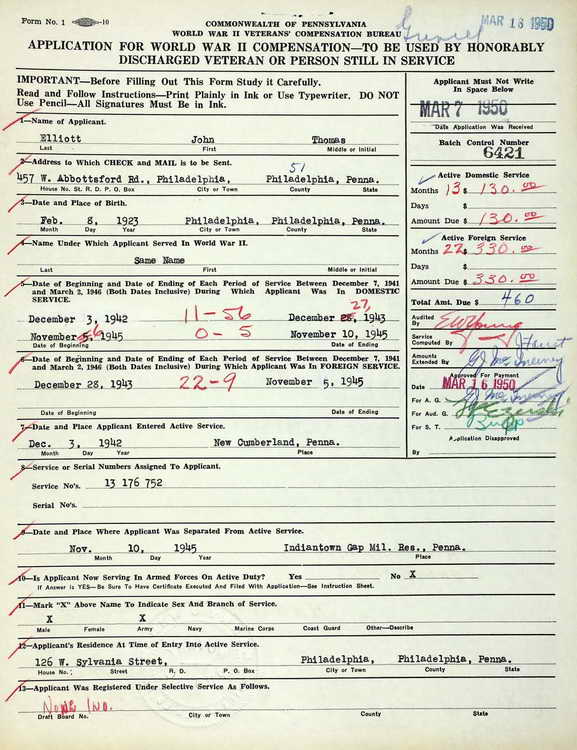 Form No. 1 -10
COMMONWEALTH OF PENNSYLVANIA
WORLD WAR II VETERANS' COMPENSATION BUREAU
MAR 16 1950
APPLICATION FOR WORLD WAR II COMPENSATION—TO BE USED BY HONORABLY
DISCHARGED VETERAN OR PERSON STILL IN SERVICE
IMPORTANT—Before Filling Out This Form Study it Carefully.
Read and Follow Instructions—Print Plainly in Ink or Use Typewriter. DO NOT
Use Pencil—All Signatures Must Be in Ink.
1—Name of Applicant.
Elliott John Thomas
Last First Middle or Initial
2—Address to Which CHECK and MAIL is to be Sent.
51
457 W. Abbottsford Rd., Philadelphia, Philadelphia, Penna.
House No. St. R. D. P. O. Box City or Town County State
3—Date and Place of Birth.
Feb. 8, 1923 Philadelphia, Philadelphia, Penna.
Month Day Year City or Town County State
4—Name Under Which Applicant Served In World War II.
Same Name
Last First Middle or Initial
5—Date of Beginning and Date of Ending of Each Period of Service Between December 7, 1941
and March 2, 1946 (Both Dates Inclusive) During Which Applicant Was In DOMESTIC
SERVICE.
27,
December 3, 1942 11-56 December 28, 1943
November 5, 6 1945 0-5 November 10, 1945
Date of Beginning Date of Ending
6—Date of Beginning and Date of Ending of Each Period of Service Between December 7, 1941
and March 2, 1946 (Both Dates Inclusive) During Which Applicant Was In FOREIGN SERVICE.
December 28, 1943 22-9 November 5, 1945
Date of Beginning Date of Ending
7—Date and Place Applicant Entered Active Service.
Dec. 3, 1942 New Cumberland, Penna.
Month Day Year Place
8—Service or Serial Numbers Assigned To Applicant.
Service No's. 13 176 752
Serial No's.
9—Date and Place Where Applicant Was Separated From Active Service.
Nov. 10, 1945 Indiantown Gap Mil. Res., Penna.
Month Day Year Place
10—Is Applicant Now Serving In Armed Forces On Active Duty? Yes No X
If Answer is YES—Be Sure To Have Certificate Executed And Filed With Application—See Instruction Sheet.
11—Mark "X" Above Name To Indicate Sex And Branch of Service.
X X
Male Female Army Navy Marine Corps Coast Guard Other—Describe
12—Applicant's Residence At Time of Entry Into Active Service.
126 W. Sylvania Street, Philadelphia, Philadelphia, Penna.
House No. Street R. D. P. O. Box City or Town County State
13—Applicant Was Registered Under Selective Service As Follows.
None Ind.
Draft Board No. City or Town County State
Applicant Must Not Write
In Space Below
MAR 7 1950
Date Application Was Received
Batch Control Number
6421
Active Domestic Service
Months 13 $ 130.00
Days $
Amount Due $ 130.00
Active Foreign Service
Months 22 $ 330.00
Days $
Amount Due $ 330.00
Total Amt. Due $ 460
Audited
By
Service
Computed By
Amounts
Extended By
Approved For Payment
Date MAR 16 1950
For A. G.
For Aud. G.
For S. T.
Application Disapproved
By